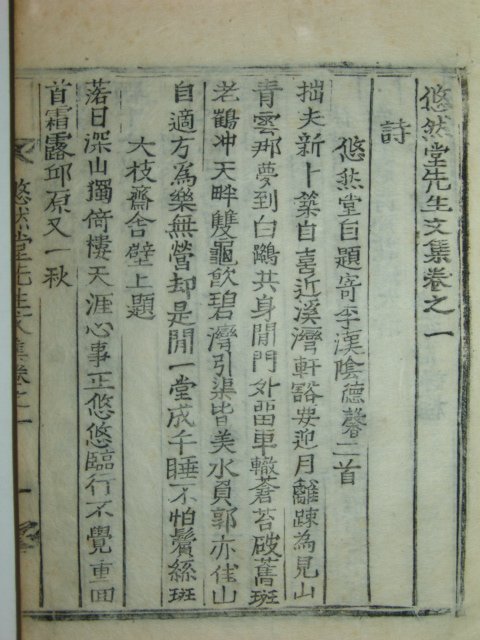 悠然堂先生文集卷之一
詩
悠然堂自題寄李漢陰德馨二首
拙夫新卜築自喜近溪灣軒豁要迎月籬踈為見山
青雲那夢到白鷗共身閒門外畱車轍蒼苔破舊斑
老鶴冲天畔雙龜飮碧灣引渠皆美水負郭亦佳山
自適方為樂無營却是閒一堂成千睡不怕鬢絲斑
大枝齋舍壁上題
落日深山獨倚樓天涯心事正悠悠臨行不覺重回
首霜露邱原又一秋
悠然堂先生文集卷之一 一